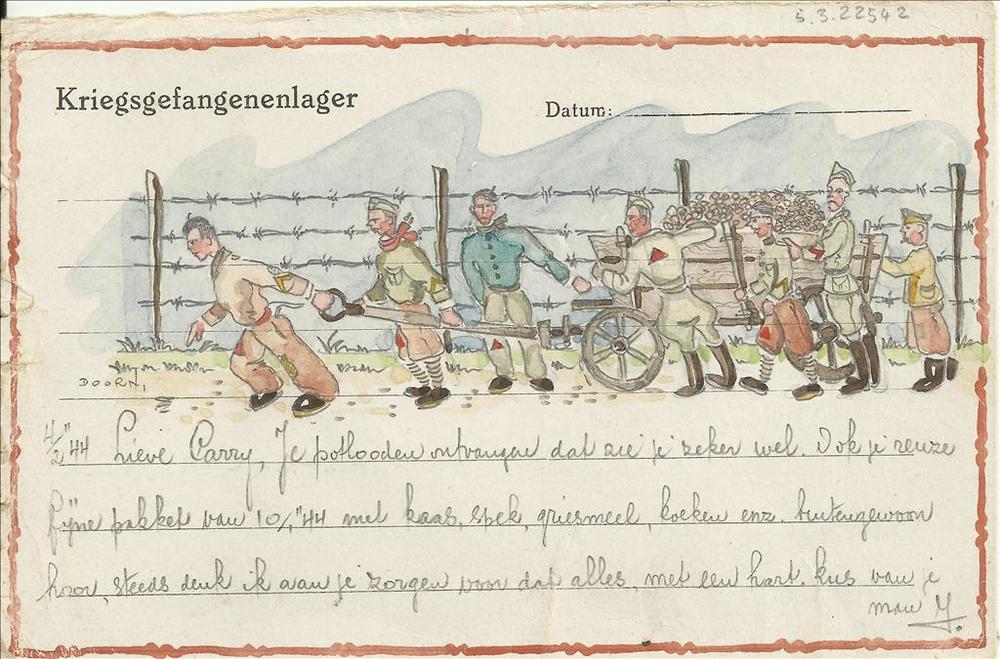 5.3.22542
Kriegsgefangenenlager
Datum:
DOORN,
4/2 "44 Lieve Carry, Je potlooden ontvangen dat zie je zeker wel. Ook je reuze
fijne pakket van 10/1 "44 met kaas, spek, griesmeel, koeken enz. buitengewoon
hoor, steeds denk ik aan je zorgen voor dat alles, met een hart. kus van je
man J.